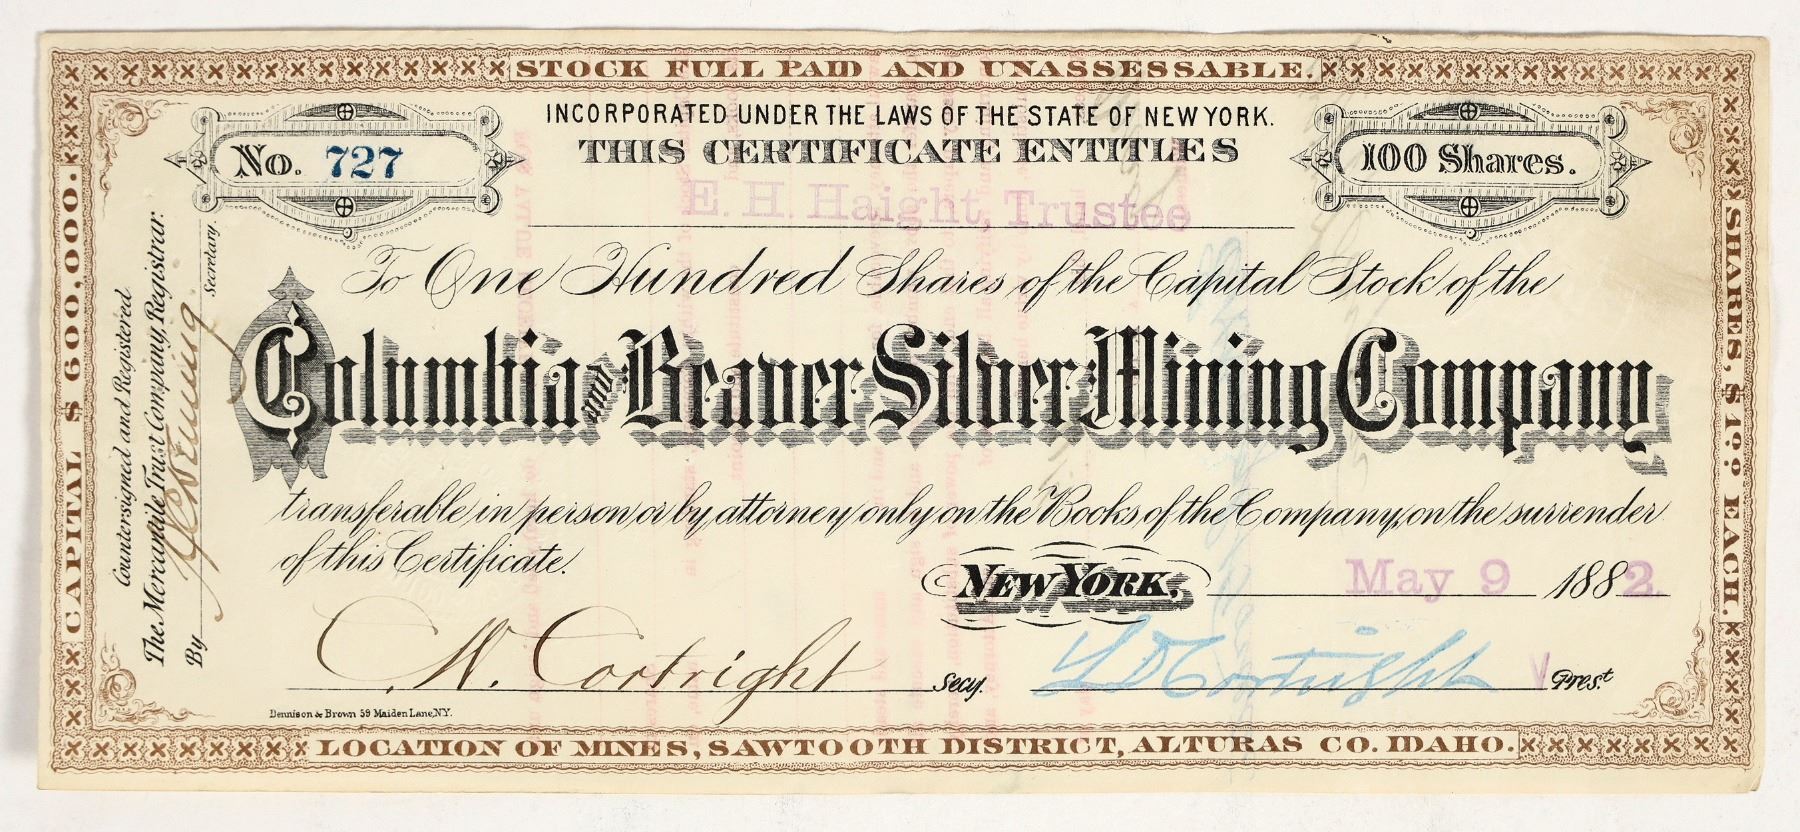 STOCK FULL PAID AND UNASSESSABLE.
INCORPORATED UNDER THE LAWS OF THE STATE OF NEW YORK.
No. 727
THIS CERTIFICATE ENTITLES
100 Shares.
E. H. Haight, Trustee
To One Hundred Shares of the Capital Stock of the
Columbia and Beaver Silver Mining Company
transferable in person or by attorney only on the Books of the Company, on the surrender
of this Certificate.
NEW YORK, May 9 1882.
W. Cortright Secy.
Cortright V Prest.
Dennison & Brown 59 Maiden Lane, N.Y.
LOCATION OF MINES, SAWTOOTH DISTRICT, ALTURAS CO. IDAHO.
CAPITAL $600,000.
Countersigned and Registered
The Mercantile Trust Company, Registrar.
By Secretary.
SHARES, $1.00 EACH.